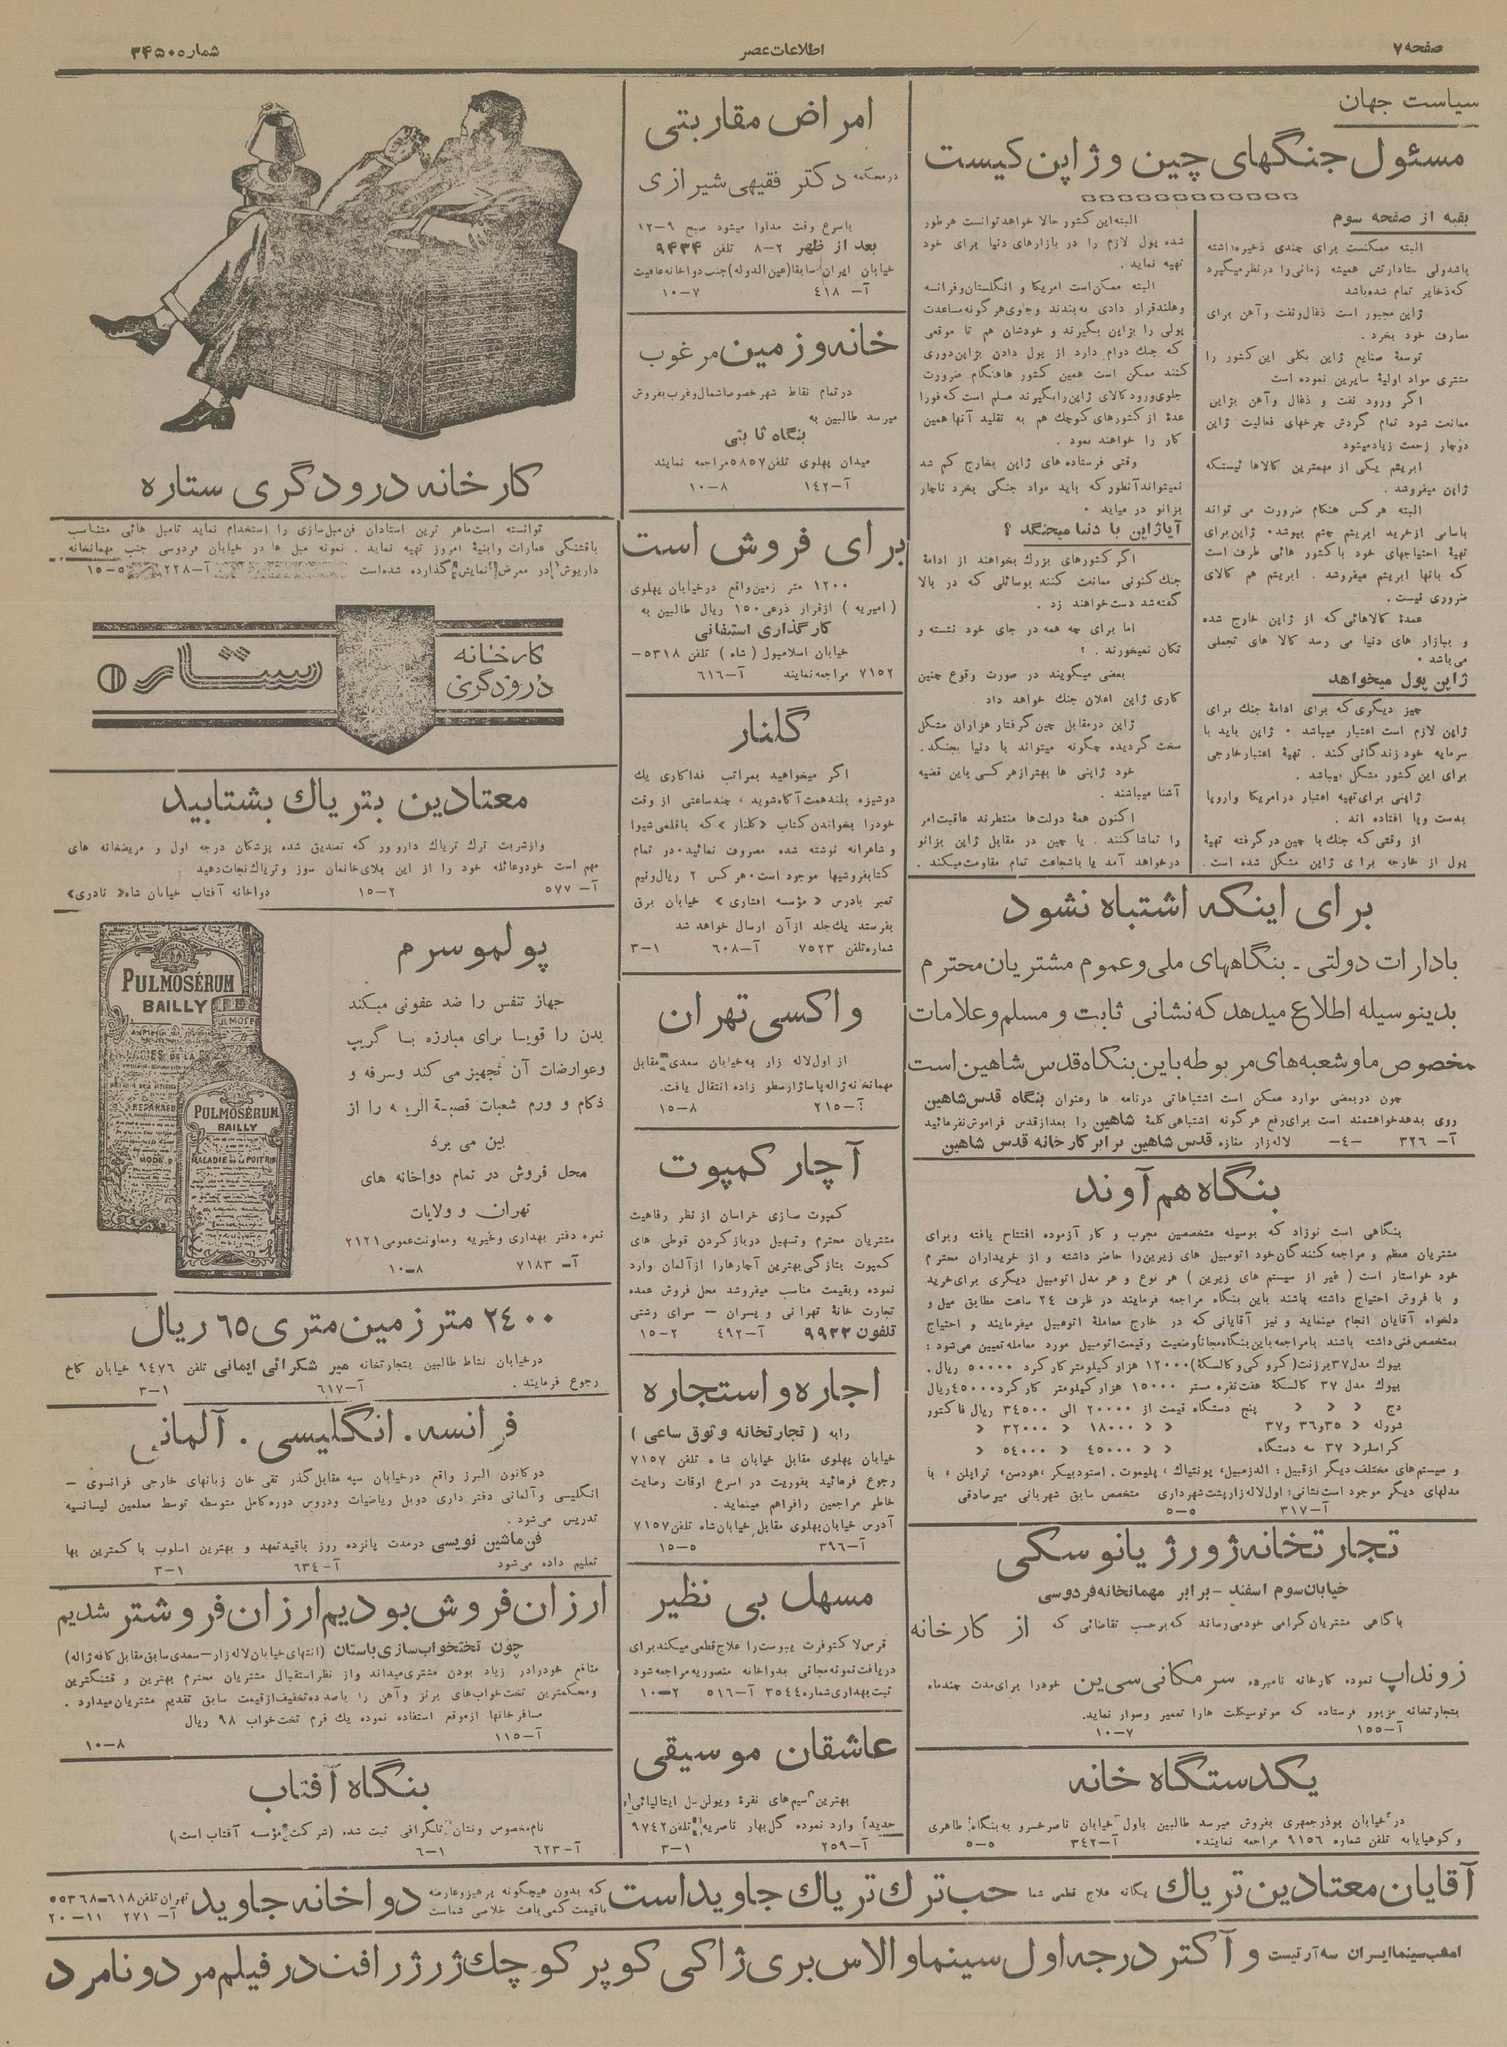 صفحه ۷
اطلاعات عصر
شماره ۳۴۵۰
سیاست جهان
مسئول جنگهای چین و ژاپن کیست
بقیه از صفحه سوم
البته ممکنست برای چندی ذخیره داشته
باشد ولی ستاد ارتش همیشه زمانی را در نظر میگیرد
که ذخایر تمام شده باشد
ژاپن مجبور است ذغال و نفت و آهن برای
مصارف خود بخرد.
توسعهٔ صنایع ژاپن بکلی این کشور را
مشتری مواد اولیهٔ سایرین نموده است
اگر ورود نفت و ذغال و آهن بژاپن
ممانعت شود تمام گردش چرخهای فعالیت ژاپن
دوچار زحمت زیاد میشود
ابریشم یکی از مهمترین کالاها ئیستکه
ژاپن میفروشد.
البته هر کس هنگام ضرورت می تواند
باسانی از خرید ابریشم چشم بپوشد. ژاپن برای
تهیهٔ احتیاجهای خود با کشور هائی طرف است
که بآنها ابریشم میفروشد. ابریشم هم کالای
ضروری نیست.
عمدهٔ کالاهائی که از ژاپن خارج شده
و ببازار های دنیا می رسد کالا های تجملی
می باشد.
ژاپن پول میخواهد
چیز دیگری که برای ادامهٔ جنك برای
ژاپن لازم است اعتبار میباشد. ژاپن باید با
سرمایه خود زندگانی کند. تهیهٔ اعتبار خارجی
برای این کشور مشگل میباشد.
ژاپنی برای تهیه اعتبار در امریکا و اروپا
بدست و پا افتاده اند.
از وقتی که جنك با چین در گرفته تهیهٔ
پول از خارجه برای ژاپن مشگل شده است.
البته این کشور حالا خواهد توانست هر طور
شده پول لازم را در بازارهای دنیا برای خود
تهیه نماید.
البته ممکن است امریکا و انگلستان و فرانسه
و هلند قرار دادی به بندند و جلوی هر گونه مساعدت
پولی را بژاپن بگیرند و خودشان هم تا موقعی
که جنك دوام دارد از پول دادن بژاپن دوری
کنند ممکن است همین کشور ها هنگام ضرورت
جلوی ورود کالای ژاپن را بگیرند مسلم است که فورا
عدهٔ از کشورهای کوچك هم به تقلید آنها همین
کار را خواهند نمود.
وقتی فرستاده های ژاپن بخارج کم شد
نمیتواند آنطور که باید مواد جنگی بخرد ناچار
بزانو در میاید.
آیا ژاپن با دنیا میجنگد؟
اگر کشورهای بزرك بخواهند از ادامهٔ
جنك کنونی ممانعت کنند بوسائلی که در بالا
گفته شد دست خواهند زد.
اما برای چه همه در جای خود نشسته و
تکان نمیخورند. ؟
بعضی میگویند در صورت وقوع چنین
کاری ژاپن اعلان جنك خواهد داد
ژاپن در مقابل چین گرفتار هزاران مشگل
سخت گردیده چگونه میتواند با دنیا بجنگد.
خود ژاپنی ها بهتر از هر کسی باین قضیه
آشنا میباشند.
اکنون همهٔ دولت‌ها منتظرند عاقبت امر
را تماشا کنند. یا چین در مقابل ژاپن بزانو
در خواهد آمد یا با شجاعت تمام مقاومت میکند.
برای اینکه اشتباه نشود
بادارات دولتی ـ بنگاههای ملی و عموم مشتریان محترم
بدینوسیله اطلاع میدهد که نشانی ثابت و مسلم و علامات
مخصوص ما و شعبه‌های مربوطه باین بنگاه قدس شاهین است
چون در بعضی موارد ممکن است اشتباهاتی در نامه ها و عنوان بنگاه قدس شاهین
روی بدهد خواهشمند است برای رفع هر گونه اشتباهی کلمهٔ شاهین را بعد از قدس فراموش نفرمائید
آ– ۳۲۶ –۴– لاله زار مغازه قدس شاهین برابر کارخانه قدس شاهین
بنگاه هم آوند
بنگاهی است نوزاد که بوسیله متخصصین مجرب و کار آزموده افتتاح یافته و برای
مشتریان معظم و مراجعه کنندگان خود اتومبیل های زیرین را حاضر داشته و از خریداران محترم
خود خواستار است (غیر از سیستم های زیرین) هر نوع و هر مدل اتومبیل دیگری برای خرید
و یا فروش احتیاج داشته باشند باین بنگاه مراجعه فرمایند در ظرف ۲۴ ساعت مطابق میل و
دلخواه آقایان انجام مینماید و نیز آقایانی که در خارج معامله اتومبیل میفرمایند و احتیاج
بمتخصص فنی داشته باشند با مراجعه باین بنگاه مجاناً وضعیت و قیمت اتومبیل مورد معامله تعیین می‌شود:
بیوك مدل ۳۷ برزنت (کروکی و کالسکهٔ) ۱۲۰۰۰ هزار کیلومتر کار کرد ۵۰۰۰۰ ریال.
بیوك مدل ۳۷ کالسکهٔ هفت نفره مستر ۱۵۰۰۰ هزار کیلومتر کار کرد ۴۵۰۰۰ ریال
دج « « « پنج دستگاه قیمت از ۲۰۰۰۰ الی ۳۴۵۰۰ ریال فاکتور
شورله « ۳۵ و ۳۶ و ۳۷ « « ۱۸۰۰۰ « ۳۲۰۰۰ «
کراسلر « ۳۷ سه دستگاه « « ۴۵۰۰۰ « ۵۴۰۰۰ «
و سیستم‌های مختلف دیگر از قبیل: الدزمبیل، پونتیاك، پلیموت. استودبیکر، هودسن، تراپلن، با
مدلهای دیگر موجود است نشانی: اول لاله زار پشت شهرداری متخصص سابق شهربانی میرصادقی
آ–۳۱۷ ۵–۵
تجارتخانه ژورژ یانوسکی
خیابان سوم اسفند – برابر مهمانخانه فردوسی
باگاهی مشتریان گرامی خود می‌رساند که بر حسب تقاضائی که از کارخانه
زونداپ نموده کارخانه نامبرده سر مکانی سی ین خود را برای مدت چند ماه
بتجارتخانه مزبور فرستاده که موتوسیکلت هارا تعمیر و سوار نماید.
آ–۱۵۵ ۷–۱۰
یکدستگاه خانه
در خیابان بوذرجمهری بفروش میرسد طالبین باول خیابان ناصر خسرو به بنگاه طاهری
و کوهپایا به تلفن شماره ۹۱۵۶ مراجعه نمایند. آ–۳۴۲ ۵–۵
امراض مقاربتی
در محکمه دکتر فقیهی شیرازی
باسرع وقت مداوا میشود صبح ۹–۱۲
بعد از ظهر ۲–۸ تلفن ۹۴۳۴
خیابان ایران سابقا (عین الدوله) جنب دواخانه عافیت
آ– ۴۱۸ ۷–۱۰
خانه و زمین مرغوب
در تمام نقاط شهر خصوصا شمال و غرب بفروش
میرسد طالبین به
بنگاه ثابتی
میدان پهلوی تلفن ۵۸۵۷ مراجعه نمایند
آ–۱۴۲ ۸–۱۰
برای فروش است
۱۲۰۰ متر زمین واقع در خیابان پهلوی
(امیریه) از قرار ذرعی ۱۵۰ ریال طالبین به
کارگذاری استیفانی
خیابان اسلامبول (شاه) تلفن ۵۳۱۸–
۷۱۵۲ مراجعه نمایند آ–۶۱۶
گلنار
اگر میخواهید بمراتب فداکاری یك
دوشیزه بلند همت آگاه شوید، چند ساعتی از وقت
خود را بخواندن کتاب «گلنار» که با قلمی شیوا
و شاعرانه نوشته شده مصروف نمائید. در تمام
کتابفروشیها موجود است. هر کس ۲ ریال و نیم
تمبر بادرس «مؤسسه افشاری» خیابان برق
بفرستد یك جلد از آن ارسال خواهد شد
شماره تلفن ۷۵۲۳ آ–۶۰۸ ۱–۳
واکسی تهران
از اول لاله زار به خیابان سعدی مقابل
مهمانخانه ژاله پاساژ ارسطو زاده انتقال یافت.
آ–۲۱۵ ۸–۱۵
آچار کمپوت
کمپوت سازی خراسان از نظر رفاهیت
مشتریان محترم و تسهیل در باز کردن قوطی های
کمپوت بتازگی بهترین آچارهارا از آلمان وارد
نموده و بقیمت مناسب میفروشد محل فروش عمده
تجارت خانهٔ تهرانی و پسران – سرای رشتی
تلفون ۹۹۲۲ آ–۴۹۲ ۲–۱۵
اجاره و استجاره
رابه (تجارتخانه وثوق ساعی)
خیابان پهلوی مقابل خیابان شاه تلفن ۷۱۵۷
رجوع فرمائید بفوریت در اسرع اوقات رضایت
خاطر مراجعین را فراهم مینماید.
آدرس خیابان پهلوی مقابل خیابان شاه تلفن ۷۱۵۷
آ–۳۹۶ ۵–۱۵
مسهل بی نظیر
قرص لاکتوفرت یبوست را علاج قطعی میکند برای
دریافت نمونه مجانی بدواخانه منصوریه مراجعه شود
ثبت بهداری شماره ۳۵۴۴ آ–۵۱۶ ۲–۱۰
عاشقان موسیقی
بهترین سیم‌های نقرهٔ ویولن‌سل ایتالیائی
جدیداً وارد نموده گل بهار ناصریه تلفن ۹۷۴۲
آ–۲۵۹ ۱–۳
کارخانه درودگری ستاره
توانسته است ماهر ترین استادان فن مبل سازی را استخدام نماید تا مبل هائی متناسب
با قشنگی عمارات و ابنیهٔ امروز تهیه نماید. نمونه مبل ها در خیابان فردوسی جنب مهمانخانه
داریوش در معرض نمایش گذارده شده است آ–۲۲۸ ۵–۱۵
کارخانه
درودگری
ستاره
معتادین بتریاك بشتابید
و از شربت ترك تریاك داروور که تصدیق شده پزشکان درجه اول و مریضخانه های
مهم است خود و عائله خود را از این بلای خانمان سوز و تریاك نجات دهید
آ– ۵۷۷ ۲–۱۵ دواخانه آفتاب خیابان شاه «نادری»
پولموسرم
جهاز تنفس را ضد عفونی میکند
بدن را قویا برای مبارزه با گریپ
و عوارضات آن تجهیز می کند و سرفه و
ذکام و ورم شعبات قصبة الریه را از
بین می برد
محل فروش در تمام دواخانه های
تهران و ولایات
نمره دفتر بهداری و خیریه و معاونت عمومی ۲۱۲۱
آ– ۷۱۸۳ ۸–۱۰
PULMOSÉRUM
BAILLY
PULMOSÉRUM
BAILLY
MALADIES DE LA POITRINE
۲۴۰۰ متر زمین متری ۶۵ ریال
در خیابان نشاط طالبین بتجارتخانه میر شکرائی ایمانی تلفن ۹۴۷۶ خیابان کاخ
رجوع فرمایند. آ–۶۱۷ ۱–۳
فرانسه. انگلیسی. آلمانی
در کانون البرز واقع در خیابان سپه مقابل گذر تقی خان زبانهای خارجی فرانسوی –
انگلیسی و آلمانی دفتر داری دوبل ریاضیات و دروس دوره کامل متوسطه توسط معلمین لیسانسیه
تدریس می‌شود.
فن ماشین نویسی در مدت پانزده روز با قید تعهد و بهترین اسلوب با کمترین بها
تعلیم داده می‌شود آ–۶۳۴ ۱–۳
ارزان فروش بودیم ارزان فروشتر شدیم
چون تختخواب سازی باستان (انتهای خیابان لاله زار – سعدی سابق مقابل کافه ژاله)
منافع خود را در زیاد بودن مشتری میداند و از نظر استقبال مشتریان محترم بهترین و قشنگترین
و محکمترین تخت خواب‌های برنز و آهن را با صد ده تخفیف از قیمت سابق تقدیم مشتریان میدارد.
مسافرخانها از موقع استفاده نموده یك فرم تخت خواب ۹۸ ریال
آ–۱۱۵ ۸–۱۰
بنگاه آفتاب
نام مخصوص و نشان تلگرافی ثبت شده (شرکت مؤسسه آفتاب است)
آ–۶۲۳ ۱–۶
آقایان معتادین تریاك یگانه علاج قطعی شما حب ترك تریاك جاوید است که بدون هیچگونه پرهیز و عارضه با قیمت کمی باعث خلاصی شماست دواخانه جاوید تهران تلفن ۶۱۸–۵۵۳۶۸ آ–۲۷۱ ۱۱–۲۰
امشب سینما ایران سه آرتیست و آکتر درجه اول سینما والاس بری ژاکی کوپر کوچك ژرژ رافت در فیلم مرد و نامرد